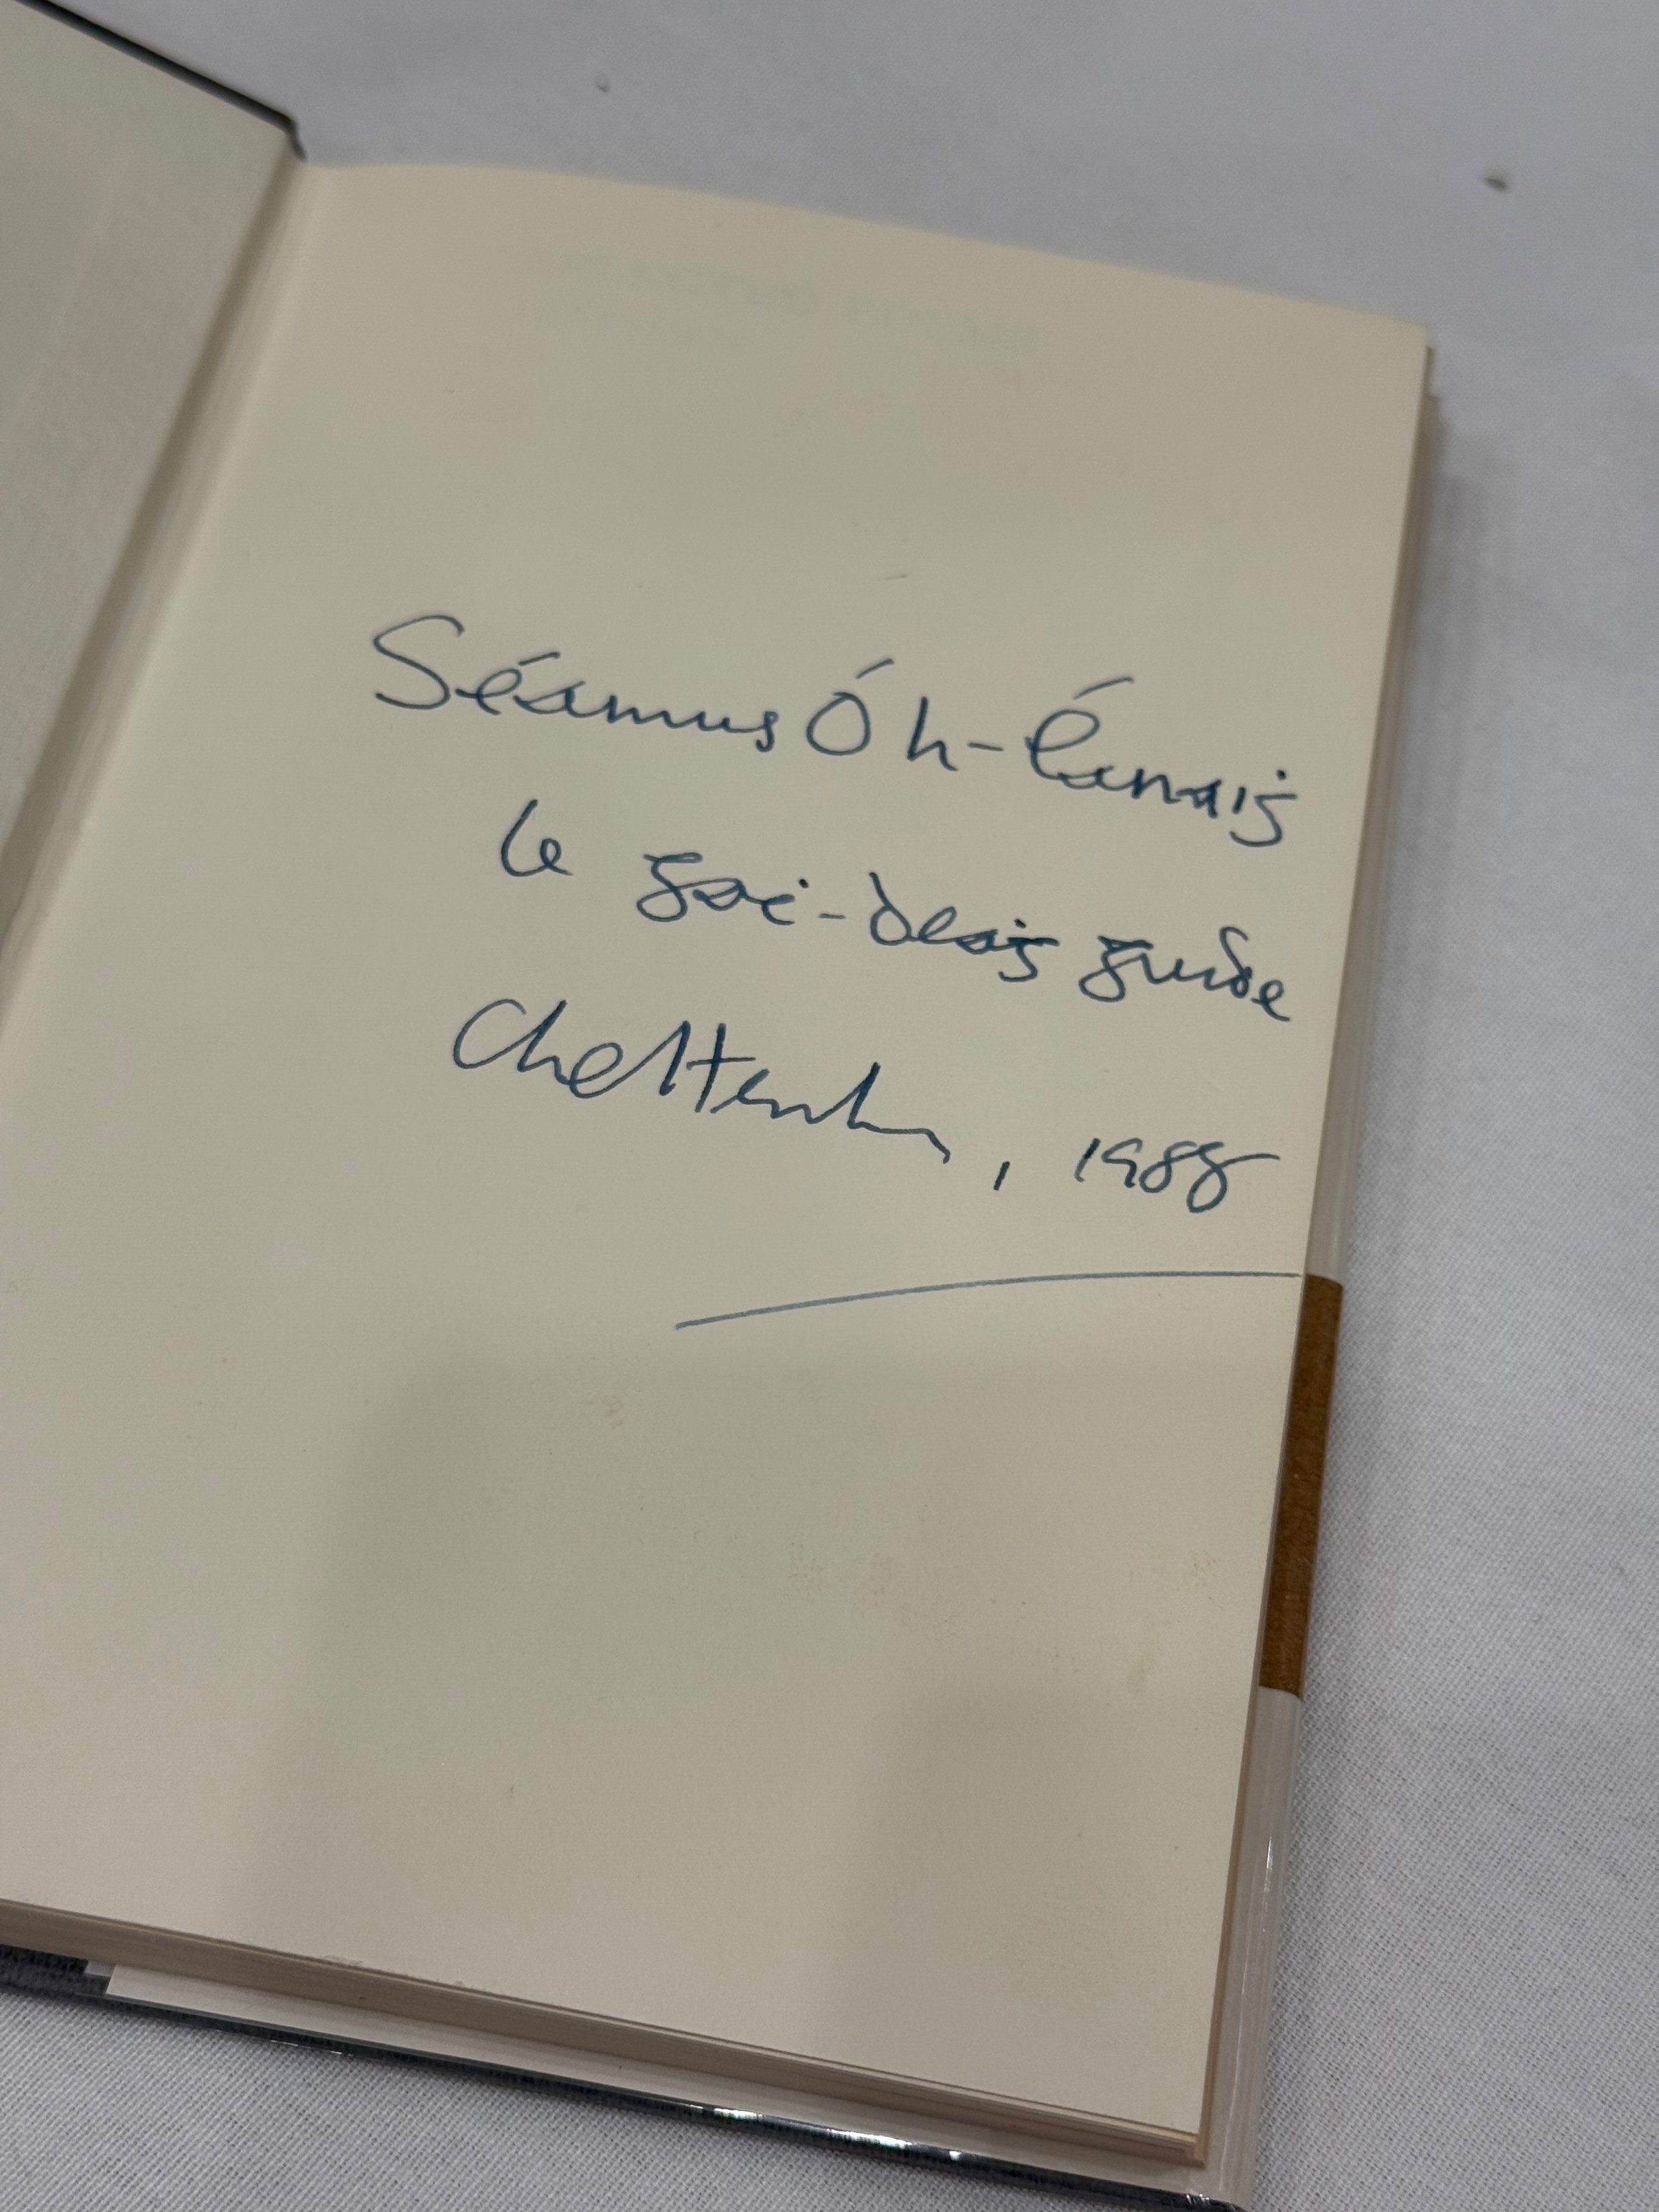 Séamus Ó h-Éanaiġ
le gaċ-deaġ guiḋe
Cheltenham, 1988